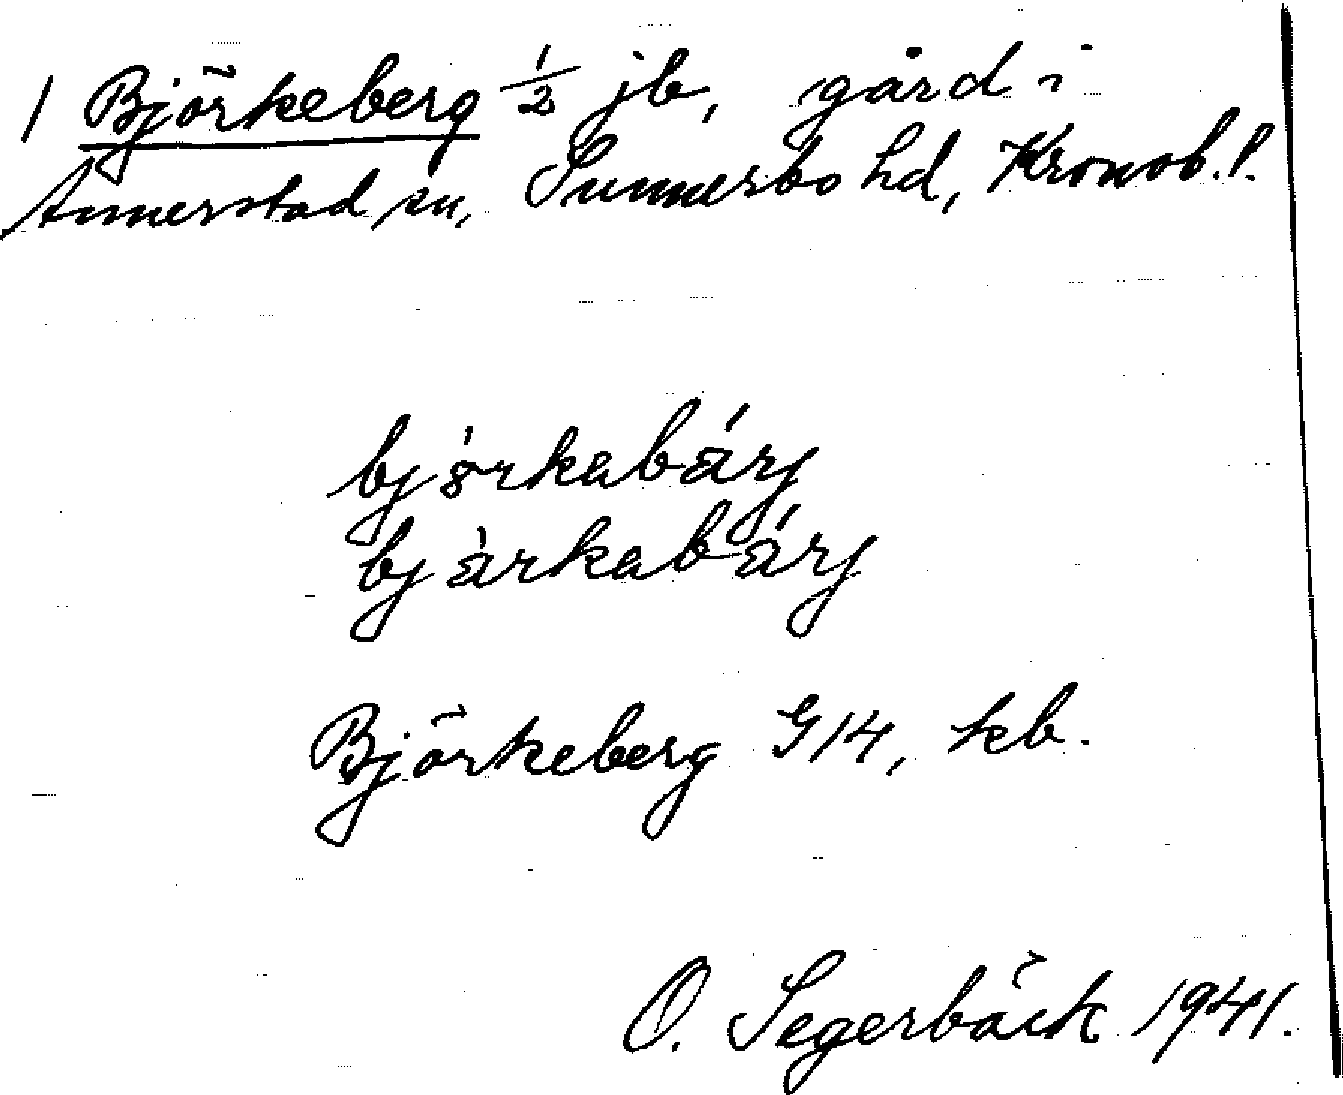 1 Björkeberg 1/2 jb, gård i
Annerstad sn, Sunnerbo hd, Kronob. l.
björkabärj
bjärkabärj
Björkeberg G14, kb.
O. Segerbäck 1941.